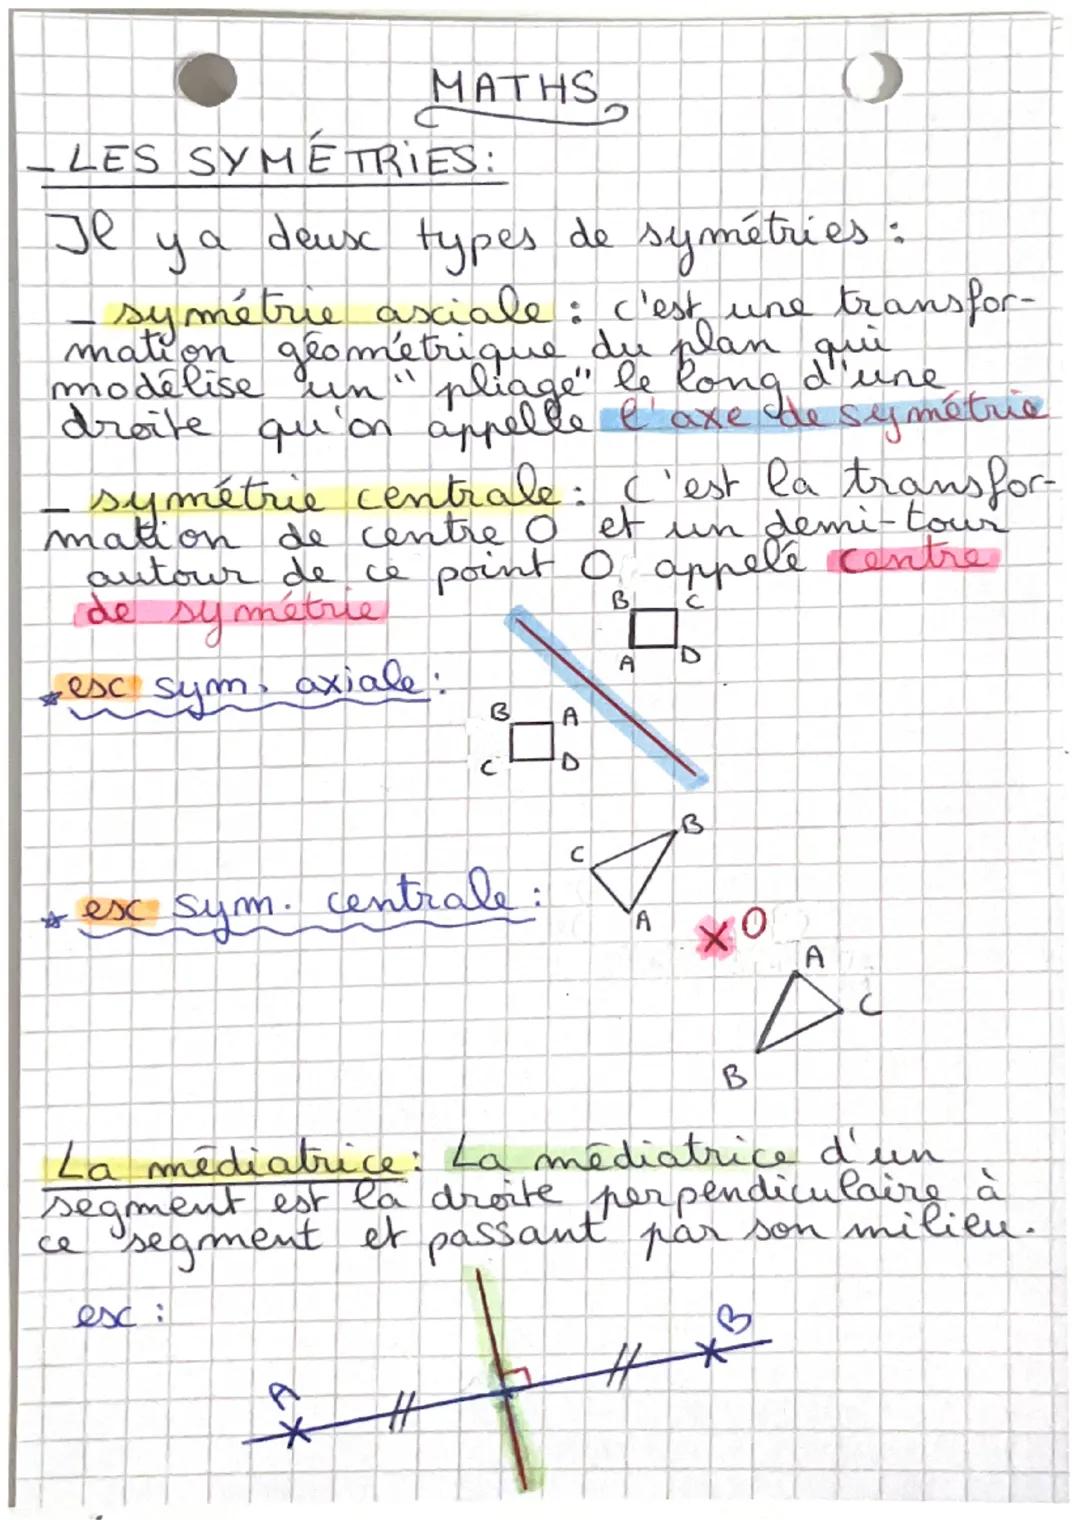 MATHS
- LES SYMÉTRIES:
Il y a deux types de symétries :
- symétrie axiale : c'est une transfor-
mation géométrique du plan qui
modélise un "pliage" le long d'une
droite qu'on appelle l'axe de symétrie
- symétrie centrale : c'est la transfor-
mation de centre O et un demi-tour
autour de ce point O appelé centre
de symétrie
B C
A D
* ex sym. axiale :
B A
C D
B
C
* ex sym. centrale :
A
x O
A
C
B
La médiatrice : La médiatrice d'un
segment est la droite perpendiculaire à
ce segment et passant par son milieu.
ex :
B
A